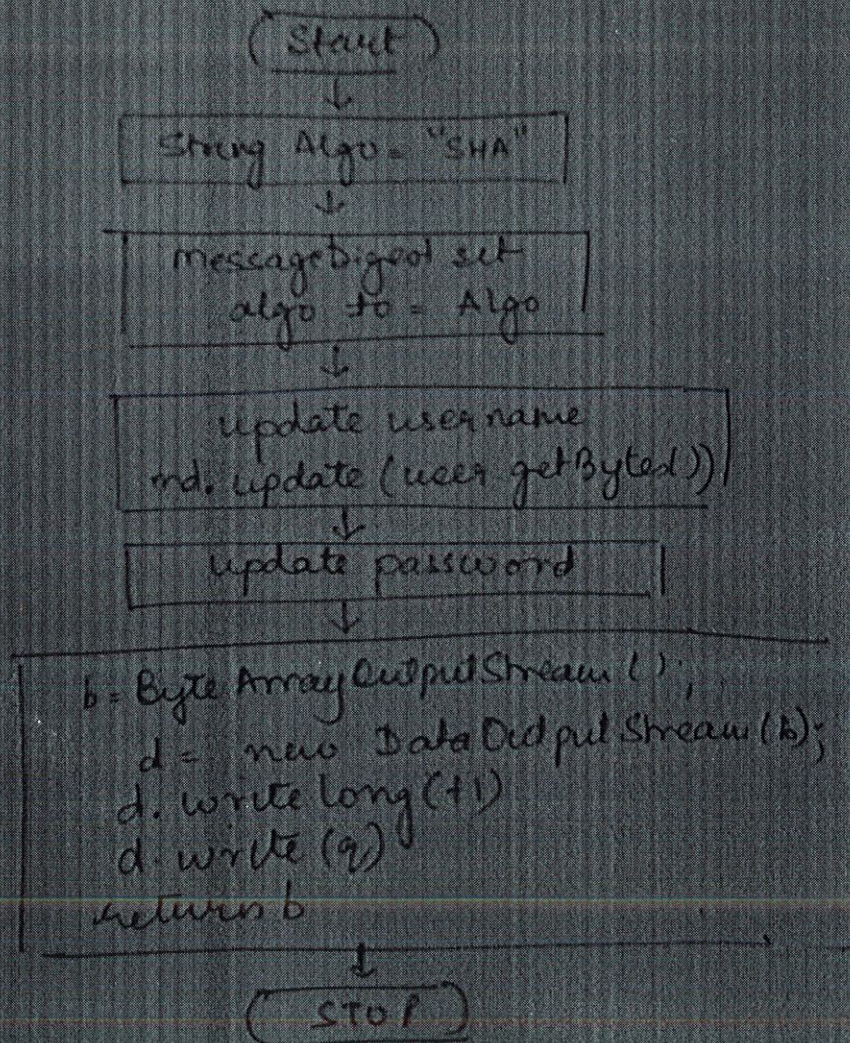 Start
String Algo = "SHA"
messageDigest set
algo to = Algo
update username
md. update (user getBytes())
update password
b = Byte ArrayOutputStream ();
d = new DataOutputStream (b);
d. write long (t1)
d. write (q)
return b
STOP